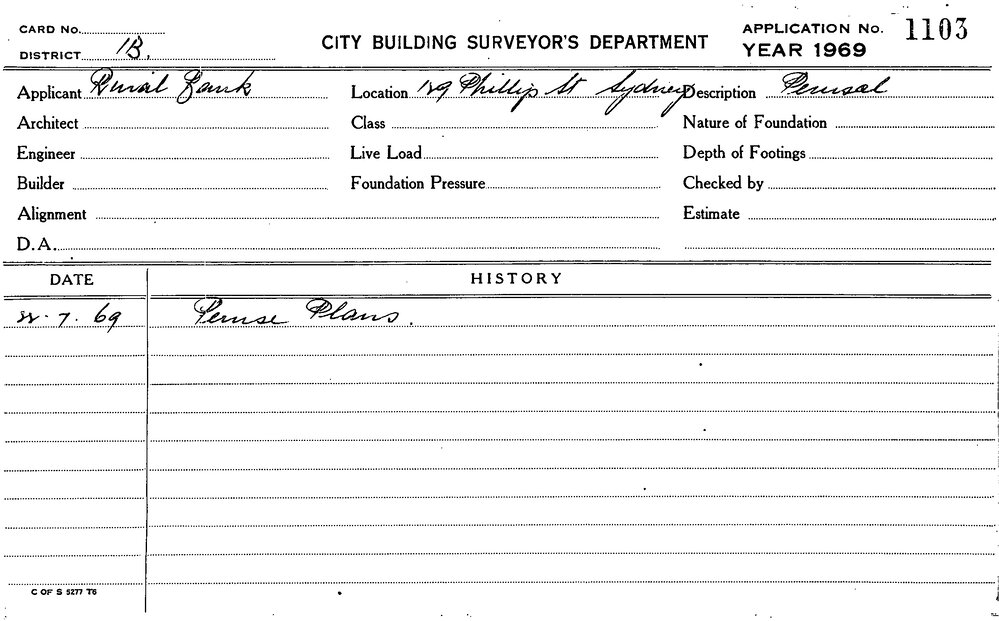 CARD No.
DISTRICT 1B.
CITY BUILDING SURVEYOR'S DEPARTMENT
APPLICATION No. 1103
YEAR 1969
Applicant Rural Bank Location 189 Phillip St Sydney Description Perusal
Architect Class Nature of Foundation
Engineer Live Load Depth of Footings
Builder Foundation Pressure Checked by
Alignment Estimate
D.A.
DATE HISTORY
22.7.69 Peruse Plans.
C OF S 5277 T6